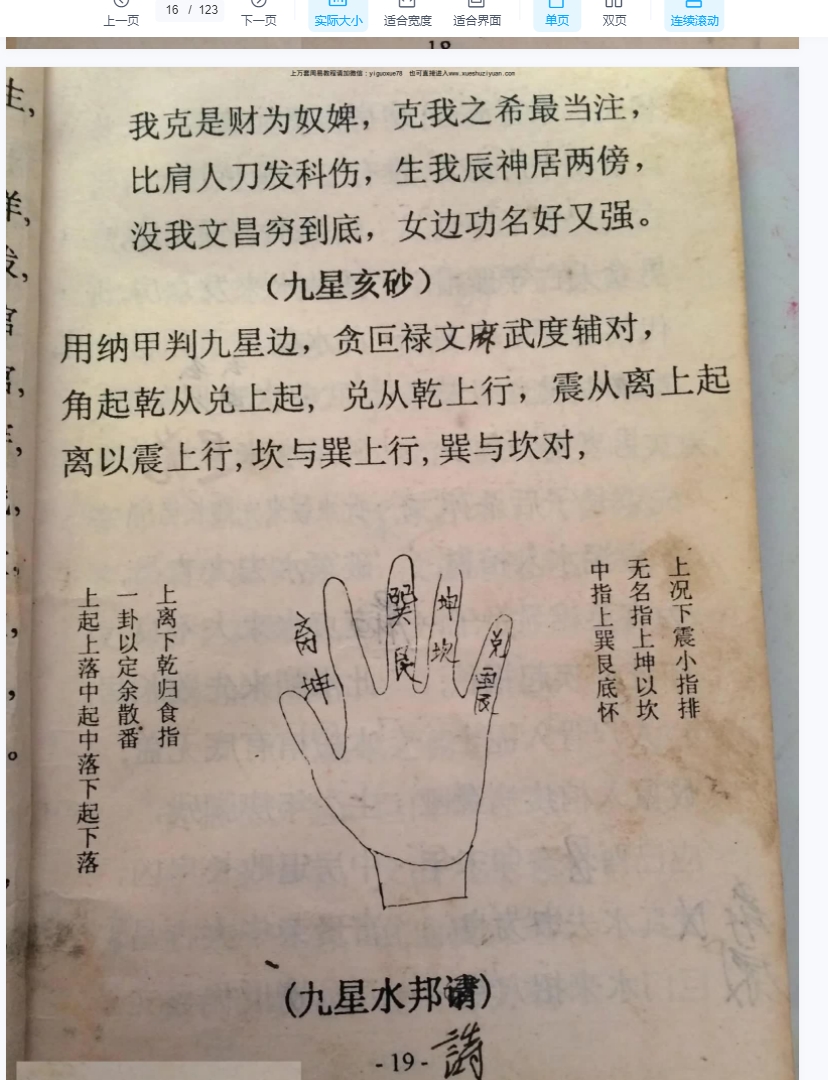 上一页
16 / 123
下一页
实际大小
适合宽度
适合界面
单页
双页
连续滚动
上万套周易教程请加微信：yiguoxue78 也可直接进入www.xueshuziyuan.com
我克是财为奴婢，克我之希最当注，
比肩人刀发科伤，生我辰神居两傍，
没我文昌穷到底，女边功名好又强。
（九星亥砂）
用纳甲判九星边，贪叵禄文廉武度辅对，
角起乾从兑上起，兑从乾上行，震从离上起
离以震上行,坎与巽上行,巽与坎对,
上况下震小指排
无名指上坤以坎
中指上巽艮底怀
上离下乾归食指
一卦以定余散番
上起上落中起中落下起下落
离
坤
巽
艮
坤
坎
兑
震
(九星水邦请)
- 19 -
詩